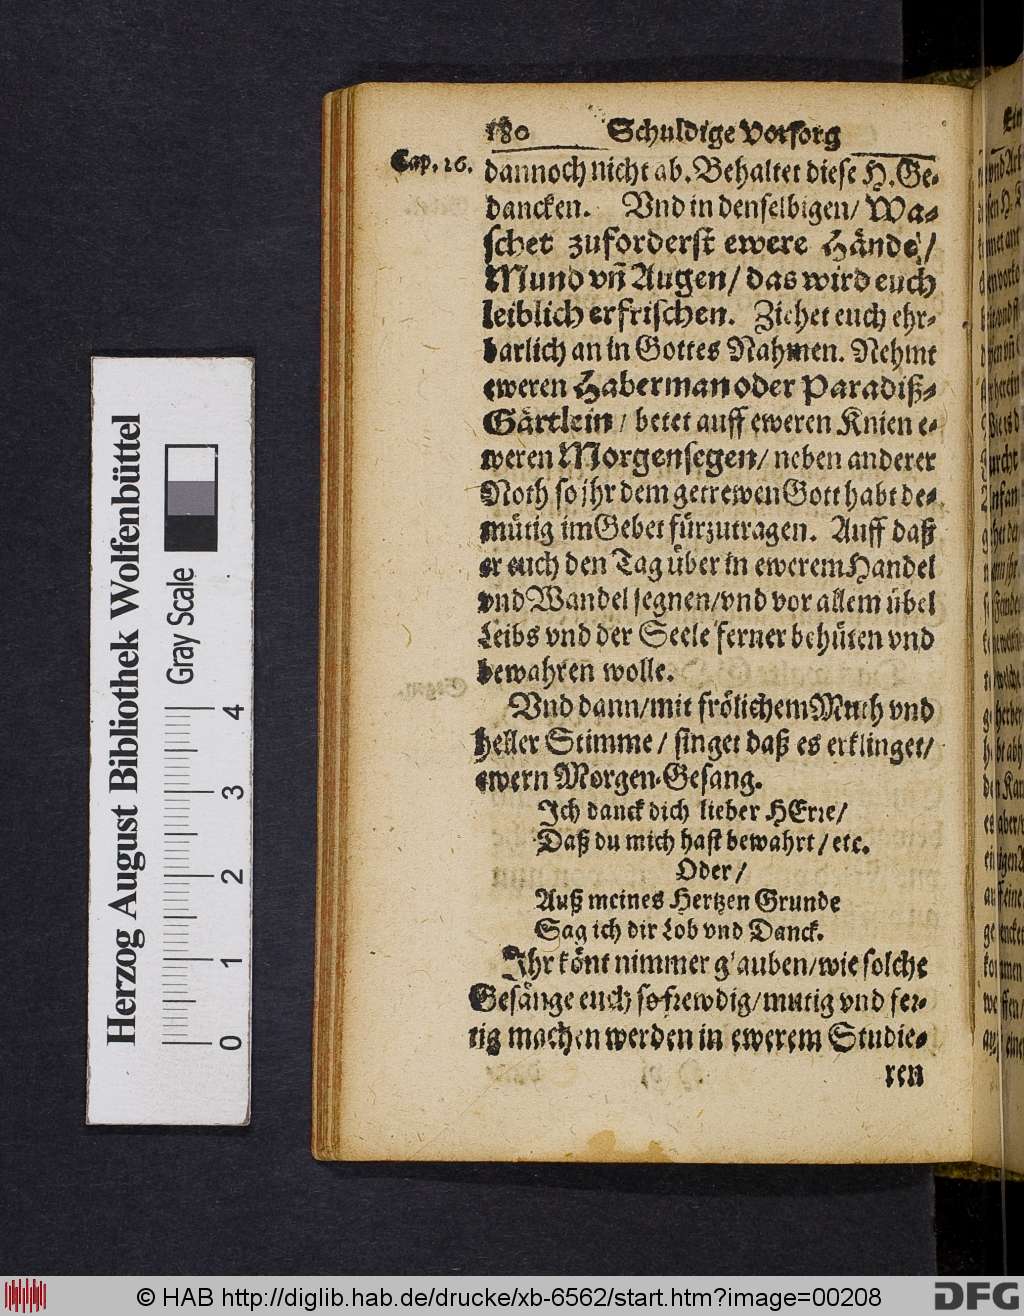 180 Schuldige Vorsorg
Cap. 26.
dannoch nicht ab. Behaltet diese H. Ge-
dancken. Vnd in denselbigen/ Wa-
schet zuforderst ewere Hände/
Mund vñ Augen/ das wird euch
leiblich erfrischen. Ziehet euch ehr-
barlich an in Gottes Nahmen. Nehmt
eweren Haberman oder Paradiß-
Gärtlein / betet auff eweren Knien e-
weren Morgensegen/ neben anderer
Noth so jhr dem getrewen Gott habt de-
mütig im Gebet fürzutragen. Auff daß
er euch den Tag über in ewerem Handel
vnd Wandel segnen/vnd vor allem übel
Leibs vnd der Seele ferner behüten vnd
bewahren wolle.
Vnd dann/mit frölichem Muth vnd
heller Stimme / singet daß es erklinget/
ewern Morgen-Gesang.
Ich danck dich lieber HErre/
Daß du mich hast bewahrt / etc.
Oder/
Auß meines Hertzen Grunde
Sag ich dir Lob vnd Danck.
Ihr könt nimmer glauben/wie solche
Gesänge euch so frewdig/mutig vnd fer-
tig machen werden in ewerem Studie-
ren
Herzog August Bibliothek Wolfenbüttel
Gray Scale
0 1 2 3 4
© HAB http://diglib.hab.de/drucke/xb-6562/start.htm?image=00208
DFG